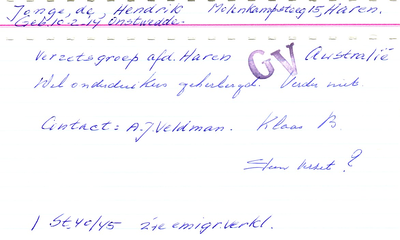 Jonge, de, Hendrik Molenkampsteeg 15, Haren.
Geb. 10.2.'14 Onstwedde.
Verzetsgroep afd. Haren GV Australië
Wel onderduikers geherbergd. Verder niets.
Contact: A.J. Veldman. Klaas B.
Steun verzet?
St. 40/45 zie emigr. verkl.